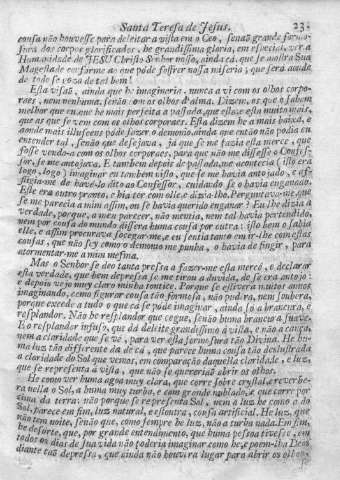 Santa Teresa de Jesus. 233
cousa não houvesse para deleitar a vista em o Ceo, senaõ grande fermo-
sura dos corpos glorificados, he grandissima gloria, em especial, ver a
Humanidade de JESU Christo Senhor nosso, ainda cá, que se mostra Sua
Magestade conforme ao que póde soffrer nossa miseria; que será aonde
de todo se goza de tal bem!
Esta visaõ, ainda que he imaginaria, nunca a vi com os olhos corpo-
raes, nem nenhuma, senão com os olhos d'alma. Dizem, os que o sabem
melhor que eu, que he mais perfeita a passada, que esta, e esta muito mais,
que as que se vem com os olhos corporaes. Esta dizem he a mais baixa, e
aonde mais illusoens póde fazer o demonio, ainda que então não podia eu
entender tal, senão que desejava, já que se me fazia esta mercê, que
fosse vendo-a com os olhos corporaes, para que não me dissesse o Confes-
sor, se me antojava. E tambem depois de passada, me acontecia (isto era
logo, logo) imaginar eu tambem visto, que se me havia antojado, e af-
fligia-me de havê-lo dito ao Confessor, cuidando se o havia enganado.
Este era outro pranto, e hia ter com elle, e dizia-lho. Perguntava-me, que
se me parecia a mim assim, ou se havia querido enganar? Eu lhe dizia a
verdade, porque, a meu parecer, não mentia, nem tal havia pertendido,
nem por cousa do mundo dissera huma cousa por outra: isto bem o sabia
elle, e assim procurava socegar-me, e eu sentia tanto em ir-lhe com estas
cousas, que não sey como o demonio me punha, o havia de fingir, para
atormentar-me a mim mesma.
Mas o Senhor se deo tanta pressa a fazer-me esta mercê, e declarar
esta verdade, que bem depressa se me tirou a duvida, de se era antojo:
e depois vejo muy claro minha tontice. Porque se estivera muitos annos
imaginando, como figurar cousa tão formosa, não pudera, nem soubera,
porque excede a tudo o que cá se póde imaginar, ainda só a brancura, e
resplandor. Não he resplandor que cegue, senão huma brancura suave,
E o resplandor infuso, que dá deleite grandissimo á vista, e não a cança,
nem a claridade que se vê, para ver esta fermosura tão Divina. He hu-
ma luz tão differente da de cá, que parece huma cousa tão deslustrada
a claridade do Sol que vemos, em comparação daquella claridade, e luz,
que se representa á vista, que não se quererião abrir os olhos.
He como ver huma agoa muy clara, que corre sobre crystal, e reverbe-
ra nella o Sol, a huma muy turba, e com grande nublado, e que corre por
cima da terra: não porque se representa Sol, nem a luz he como a do
Sol, parece em fim, luz natural, e estoutra, cousa artificial. He luz, que
não tem noite, senão que, como sempre he luz, não a turba nada. Em fim,
he desorte, que, por grande entendimento, que huma pessoa tivesse, em
todos os dias de sua vida não poderia imaginar como he, e poem-lha Deos
diante taõ depressa, que ainda não houvera lugar para abrir os olhos,